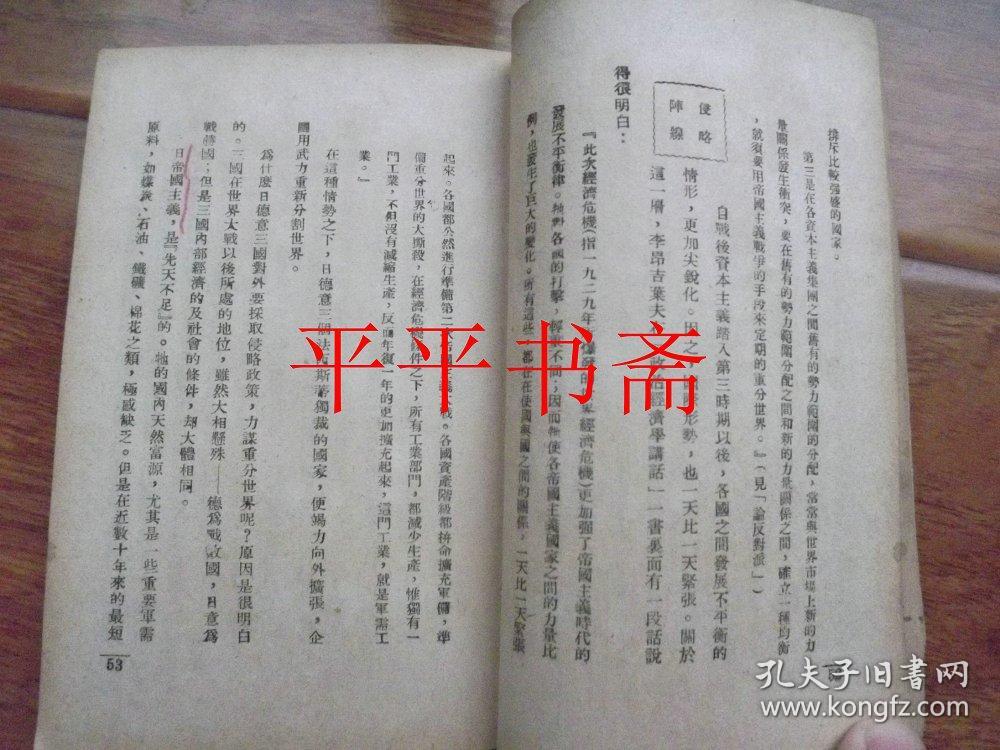 排斥比較强盛的國家。
第三是在各資本主義集團之間舊有的勢力範圍的分配，常常與世界市場上新的力
量關係發生衝突，要在舊有的勢力範圍分配之間和新的力量關係之間，確立一種均衡
，就須要用帝國主義戰爭的手段來定期的重分世界。』（見「論反對派」）
侵略
陣線
自戰後資本主義踏入第三時期以後，各國之間發展不平衡的
情形，更加尖銳化。因之，國際形勢，也一天比一天緊張。關於
這一層，李昂吉葉夫在「政治經濟學講話」一書裏面有一段話說
得很明白：
『此次經濟危機（指一九二九年 經濟危機）更加強了帝國主義時代的
發展不平衡律。牠對各國的打擊，輕重不同；因而 使各帝國主義國家之間的力量比
例，也發生了巨大的變化。所有這些，都在在使國與國之間的關係，一天比一天緊張
起來。各國都公然進行準備第二次帝國主義大戰。各國資產階級都拚命擴充軍備，準
備重分世界的大撕殺，在經濟危機條件之下，所有工業部門，都減少生產，惟獨有一
門工業，不但沒有減縮生產，反而年復一年的更加擴充起來，這門工業，就是軍需工
業。』
在這種情勢之下，日德意三個法西斯蒂獨裁的國家，便竭力向外擴張，企
圖用武力重新分割世界。
爲什麼日德意三國對外要採取侵略政策，力謀重分世界呢？原因是很明白
的。三國在世界大戰以後所處的地位，雖然大相懸殊——德爲戰敗國，日意爲
戰勝國；但是三國內部經濟的及社會的條件，却大體相同。
日帝國主義，是『先天不足』的。牠的國內天然富源，尤其是一些重要軍需
原料，如煤炭、石油、鐵礦、棉花之類，極感缺乏。但是在近數十年來的最短
53
平平书斋
孔夫子旧书网
www.kongfz.com